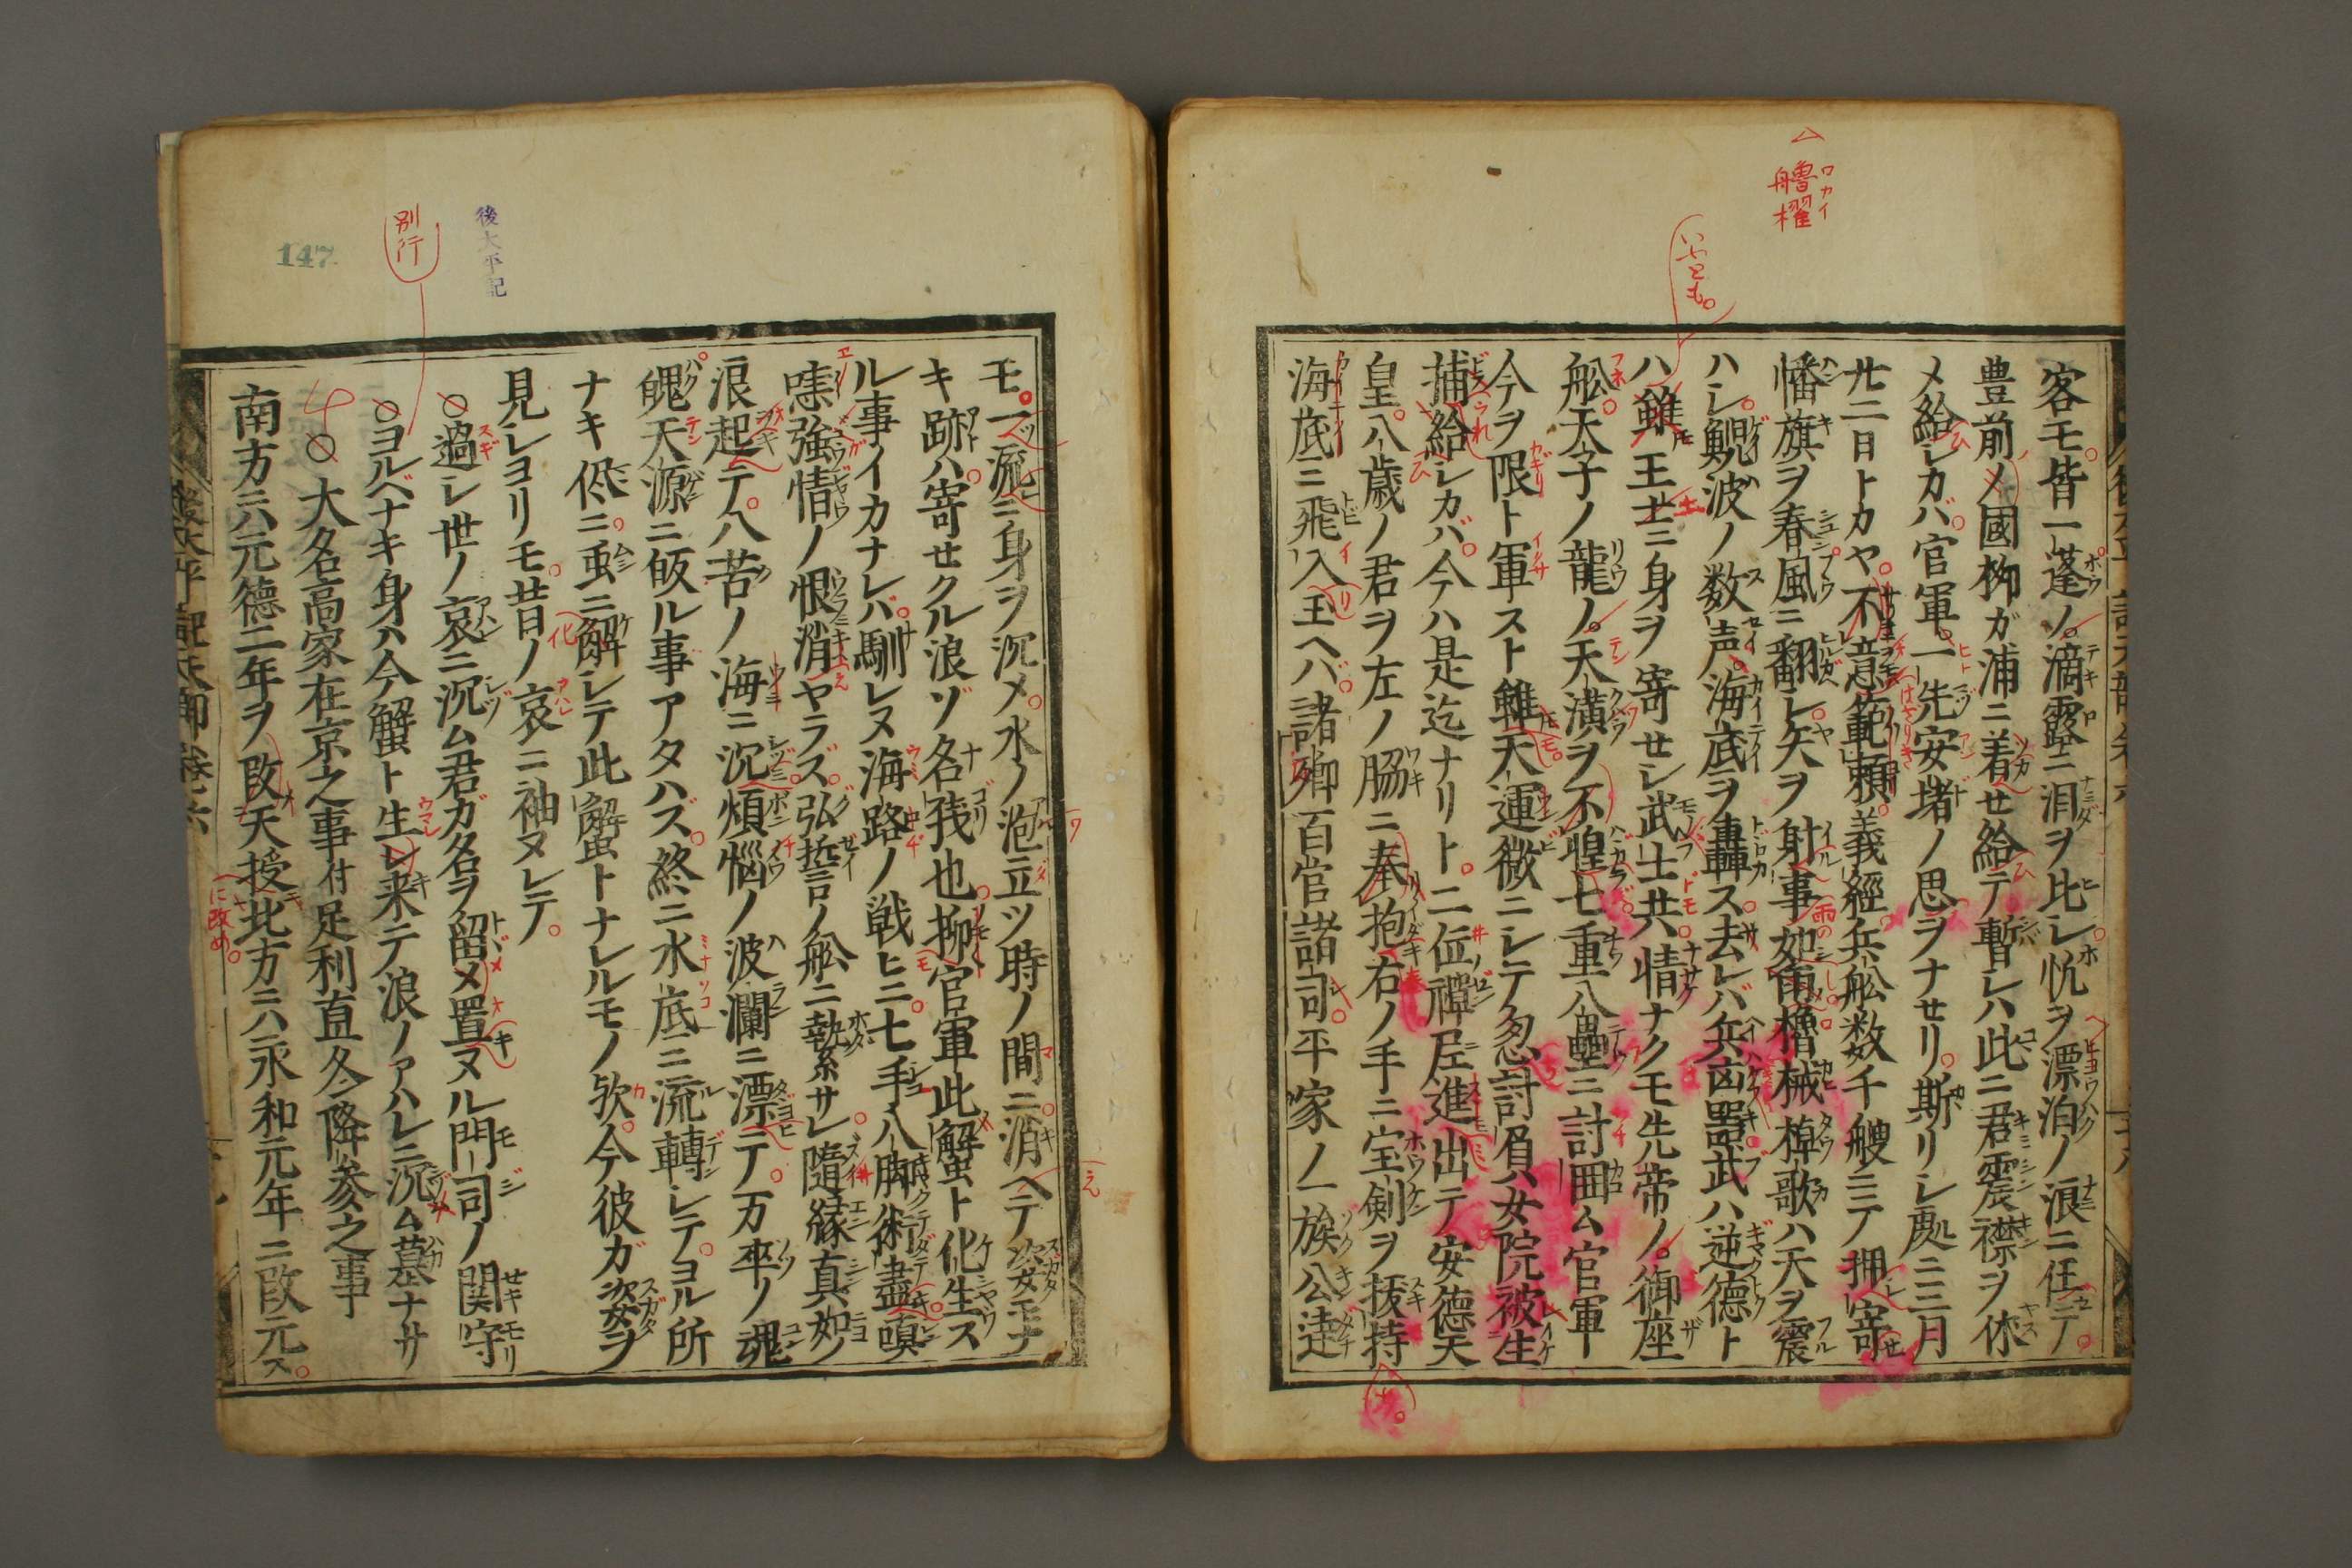 客モ皆一蓬ノ滴露ニ泪ヲ比シ忱ヲ漂泊ノ浪ニ任テ
豊前ノ國柳ガ浦ニ着セ給テ暫シハ此ニ君震襟ヲ休
メ給シカバ官軍一先安堵ノ思ヲナセリ斯リシ処ニ三月
廿二日トカヤ不意範頼義經兵舩数千艘ニテ押寄
幡旗ヲ春風ニ翻シ矢ヲ射事如雨櫓械棹歌ハ天ヲ震
ハシ鯢波ノ数声海底ヲ轟ス去レバ兵凶噐武ハ逆德ト
ハ雖王士ニ身ヲ寄セシ武士共情ナクモ先帝ノ御座
舩太子ノ龍ノ天潢ヲ不惶七重八壘ニ討囲ム官軍
今ヲ限ト軍スト雖天運微ニシテ忽討負ハ女院被生
捕給シカバ今ハ是迄ナリト二位禪尼進出テ安德天
皇八歳ノ君ヲ左ノ脇ニ奉抱右ノ手ニ宝剣ヲ抜持
海底ニ飛入玉ヘバ諸卿百官諸司平家ノ一族公達
モ一流ニ身ヲ沉メ水ノ泡立ツ時ノ間ニ消ヘテ姿モナ
キ跡ハ寄セクル浪ゾ名残也抑官軍此蟹ト化生ス
ル事イカナレバ馴レヌ海路ノ戦ヒニ七手八脚術盡嗔
嚏強情ノ恨消ヤラズ弘誓ノ舩ニ執系サレ隨縁真如ノ
浪起テ八苦ノ海ニ沉煩惱ノ波瀾ニ漂テ万卒ノ魂
魄天源ニ皈ル事アタハズ終ニ水底ニ流轉シテヨル所
ナキ侭ニ虫ニ解シテ此蟹トナレルモノ欤今彼ガ姿ヲ
見シヨリモ昔ノ哀ニ袖ヌレテ
○過シ世ノ哀ニ沉ム君ガ名ヲ留メ置ヌル門司ノ関守
○ヨルベナキ身ハ今蟹ト生レ来テ浪ノアハレニ沉ム墓ナサ
○大名高家在京之事付足利直冬降参之事
南方ニハ元德二年ヲ改天授北方ニハ永和元年ニ改元ス
△
艣櫂
ロカイ
いへとも。
別行
後太平記
147
に改め。